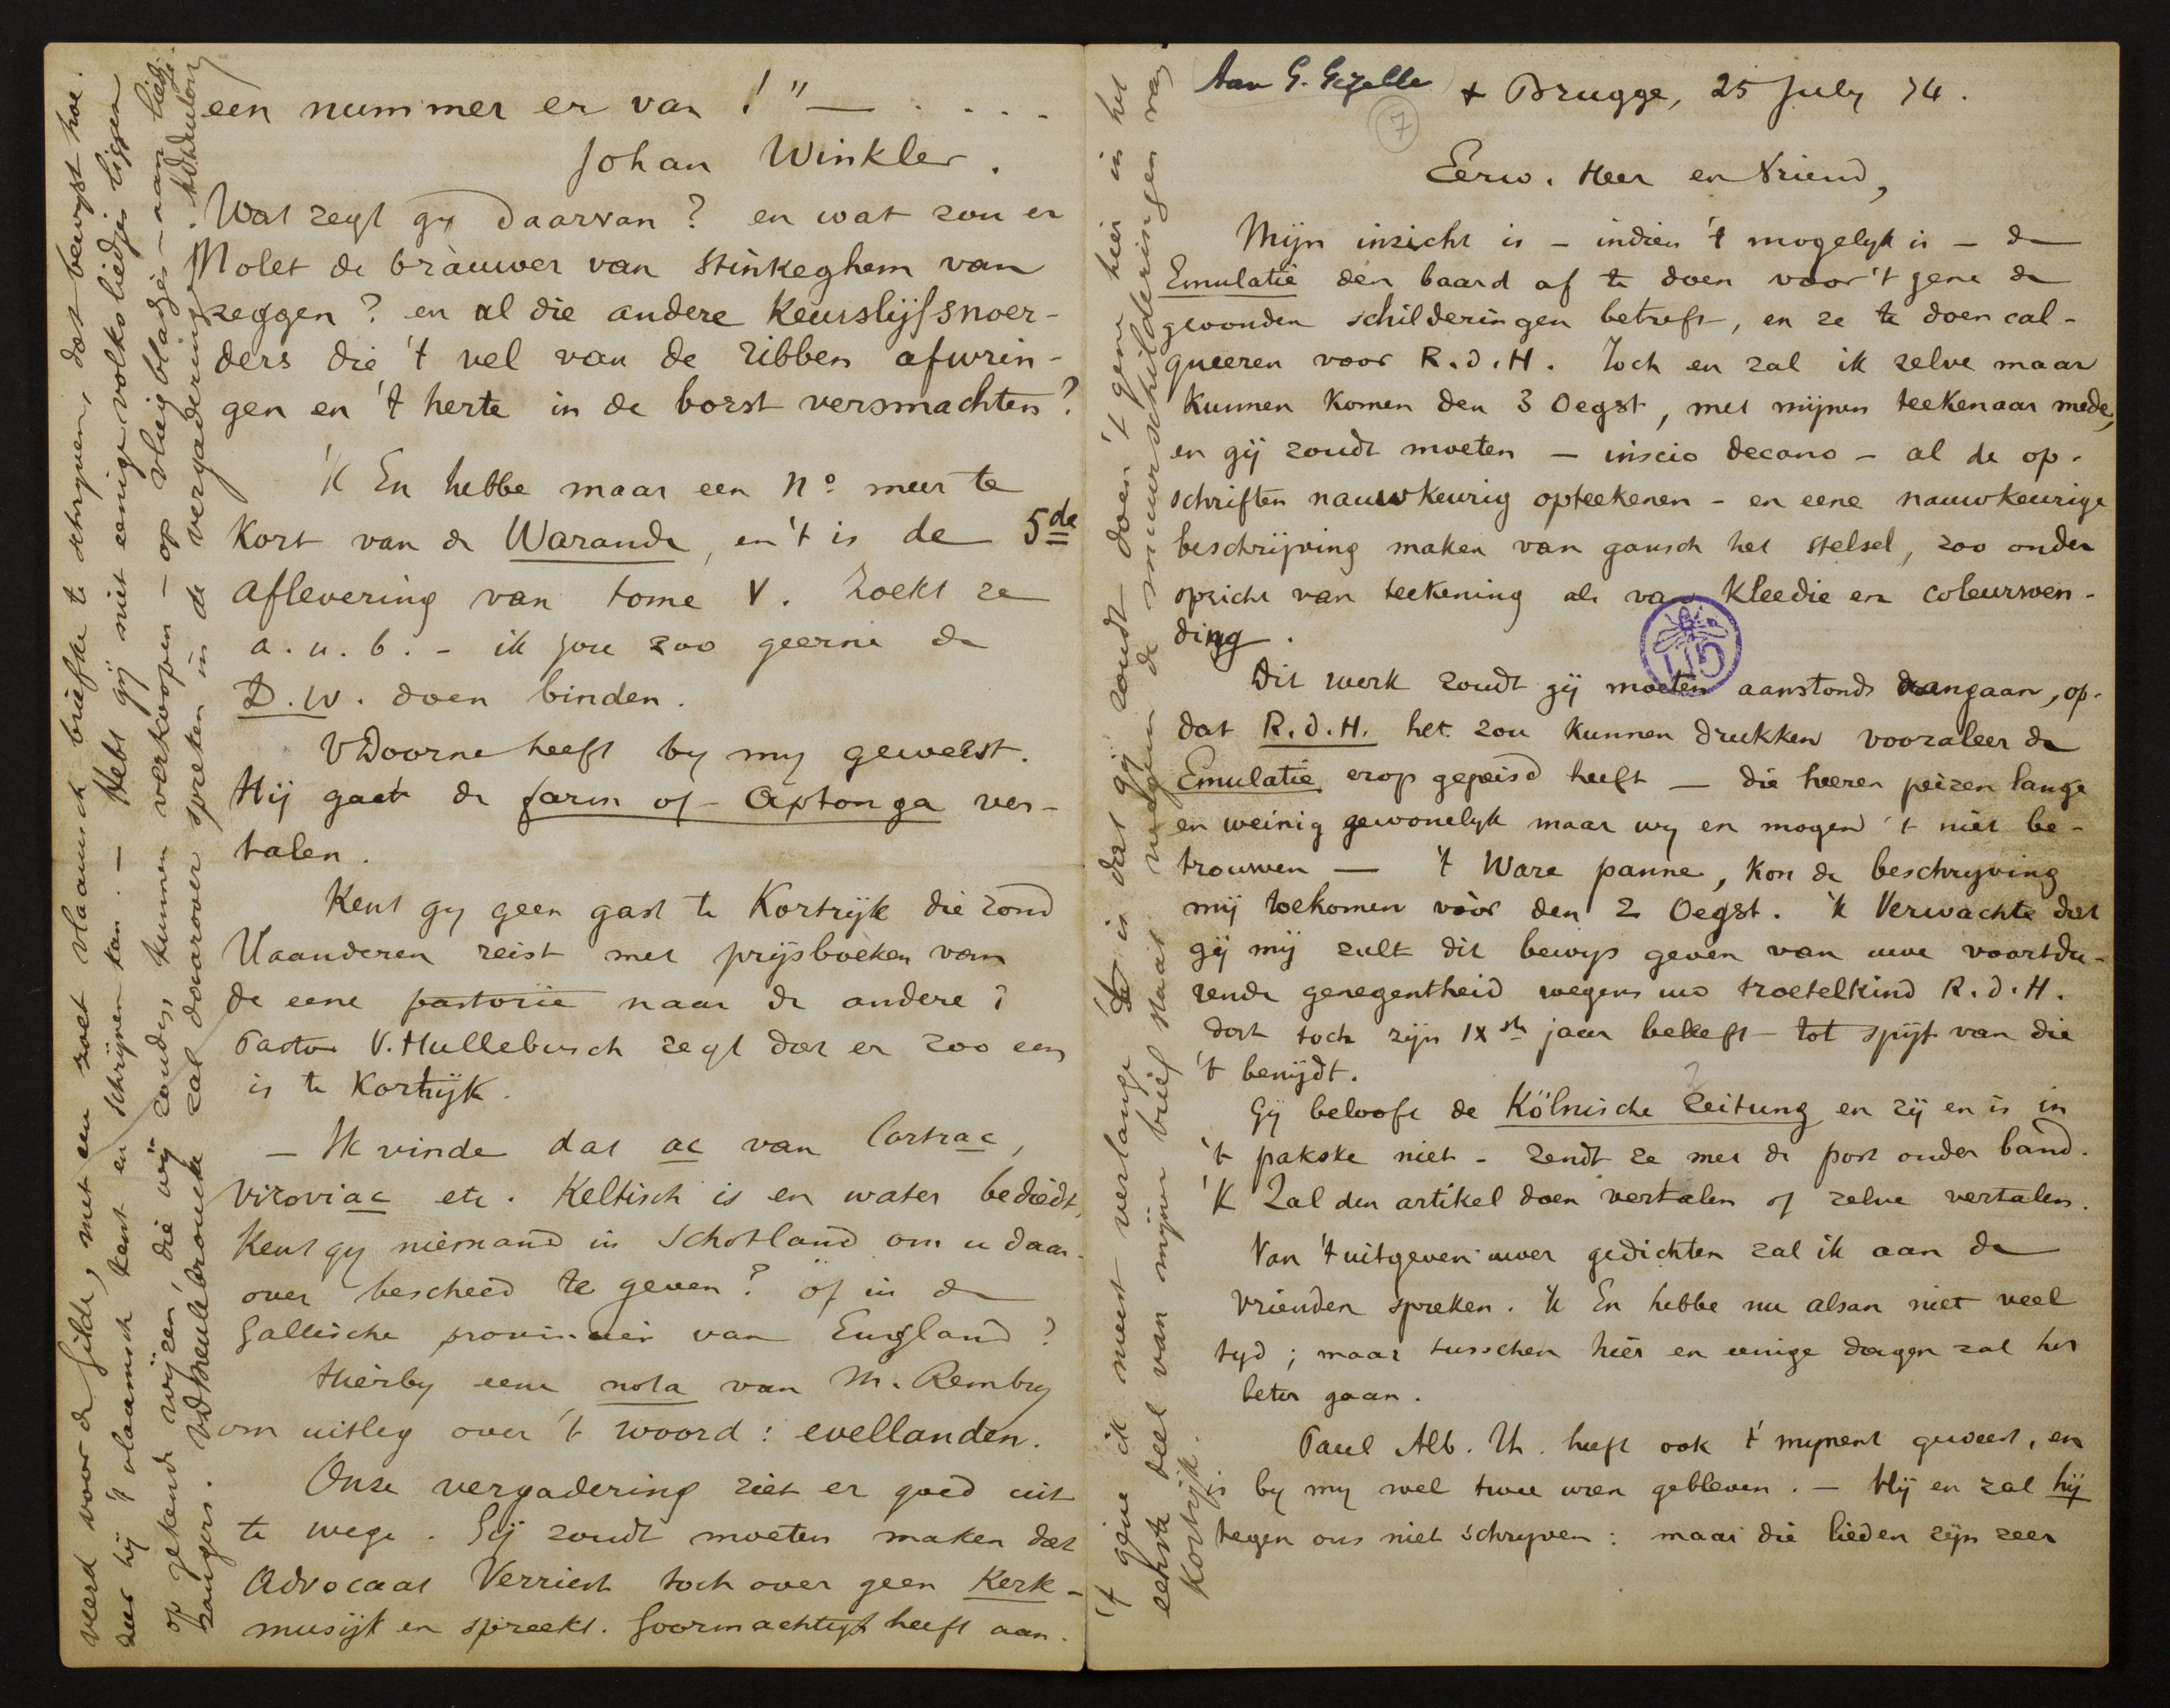 Aan G. Gezelle
7
+ Brugge, 25 July 74.
Eerw. Heer en Vriend,
Mijn inzicht is – indien 't mogelyk is – de
Emulatie den baard af te doen voor 't gene de
gevonden schilderingen betreft, en ze te doen cal-
queeren voor R.d.H. Toch en zal ik zelve maar
kunnen komen den 3 Oegst, met mijnen teekenaar mede,
en gij zoudt moeten – inscio decano – al de op-
schriften nauwkeurig opteekenen – en eene nauwkeurige
beschrijving maken van gansch het stelsel, zoo onder
opzicht van teekening als van kleedie en coleurwen-
ding.
Dit werk zoudt gij moeten aanstonds aangaan, op-
dat R.d.H. het zou kunnen drukken vooraleer de
Emulatie erop gepeisd heeft — die heeren peizen lange
en weinig gewonelyk maar wy en mogen 't niet be-
trouwen — 't Ware panne, kon de beschryving
mij toekomen vóór den 2 Oegst. 'k Verwachte dat
gij mij zult dit bewys geven van uwe voortdu-
rende genegentheid wegens uw troetelkind R.d.H.
dat toch zijn IXste jaar beleeft – tot spijt van die
't benijdt.
Gij belooft de Kölnische Zeitung en zij en is in
't pakske niet – zendt ze met de post onder band.
'K Zal den artikel doen vertalen of zelve vertalen.
Van 't uitgeven uwer gedichten zal ik aan de
vrienden spreken. 'k En hebbe nu alsan niet veel
tyd; maar tusschen hier en eenige dagen zal het
beter gaan.
Paul Alb. Th. heeft ook t' mynent geweest, en
is by my wel twee uren gebleven. – Hij en zal hij
tegen ons niet schryven: maar die lieden zijn zeer
't gene ik meest verlange is dat gij zoudt doen 't gene hier in het
eerste deel van mijnen brief staat nopens de muurschilderingen van
Kortrijk.
een nummer er van!" — . . . .
Johan Winkler.
Wat zegt gy daarvan? en wat zou er
Molet de brauwer van Stinkeghem van
zeggen? en al die andere keurslijfsnoer-
ders die 't vel van de ribben afwrin-
gen en 't herte in de borst versmachten?
'K En hebbe maar een No meer te
kort van de Warande, en 't is de 5de
aflevering van tome V. Zoekt ze
a.u.b. – ik zou zoo geerne de
D.W. doen binden.
VDoorne heeft by my geweest.
Hij gaat de farm of Aptonga ver-
talen.
Kent gy geen gast te Kortrijk die rond
Vlaanderen reist met prijsboeken van
de eene pastorie naar de andere?
Pastor V.Hullebusch zegt dat er zoo een
is te Kortrijk.
– Ik vinde dat ac van Cortrac,
viroviac etc. Keltisch is en water bediedt,
Kent gy niemand in Schotland om u daar-
over bescheed te geven? of in de
Gallische provincien van England?
Hierby eene nota van M. Rembry
om uitleg over 't woord: evellanden.
Onze vergadering ziet er goed uit
te wege. Gij zoudt moeten maken dat
Advocaat Verriest toch over geen Kerk-
musijk en spreekt. Goormachtigh heeft aan-
veerd voor de Gilde, met een zoet vlaamsch briefke te schryven, dat bewyst hoe
zeer hij 't vlaamsch kent en schrijven kan. – Hebt gij niet eenige volksliedjes liggen
op gekende wijzen, die wij zouden kunnen verkoopen – op vliegbladjes – aan lied-
zangers. VdMeulebroucke zal daarover spreken in de vergadering.